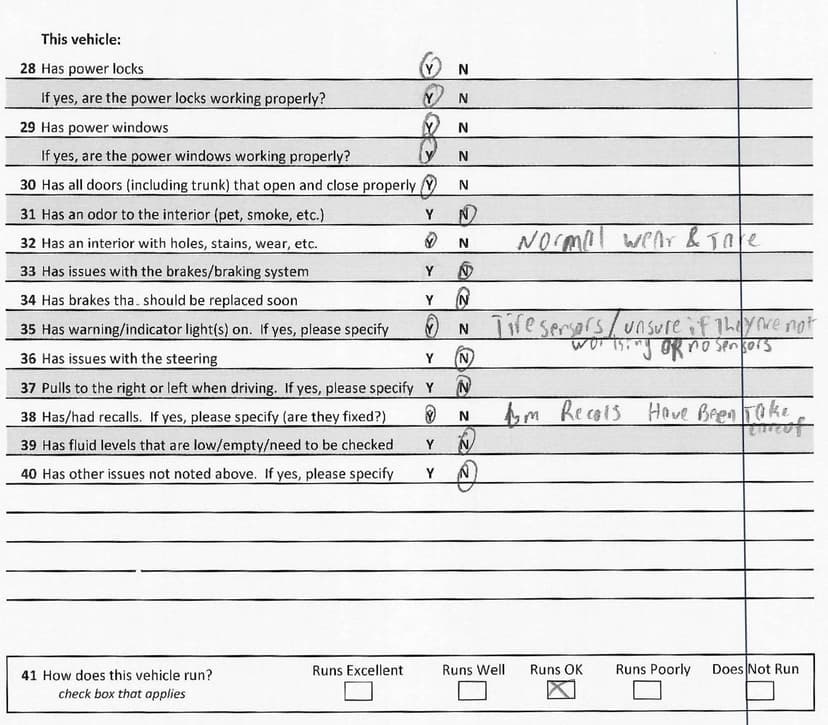 This vehicle:
28 Has power locks Y N
If yes, are the power locks working properly? Y N
29 Has power windows Y N
If yes, are the power windows working properly? Y N
30 Has all doors (including trunk) that open and close properly Y N
31 Has an odor to the interior (pet, smoke, etc.) Y N
32 Has an interior with holes, stains, wear, etc. Y N NOrmAl weAr & TAre
33 Has issues with the brakes/braking system Y N
34 Has brakes tha. should be replaced soon Y N
35 Has warning/indicator light(s) on. If yes, please specify Y N Tire sensors / unsure if They're not
working OR no sensors
36 Has issues with the steering Y N
37 Pulls to the right or left when driving. If yes, please specify Y N
38 Has/had recalls. If yes, please specify (are they fixed?) Y N Recals Have Been TAke
39 Has fluid levels that are low/empty/need to be checked Y N
40 Has other issues not noted above. If yes, please specify Y N
41 How does this vehicle run? Runs Excellent Runs Well Runs OK Runs Poorly Does Not Run
check box that applies